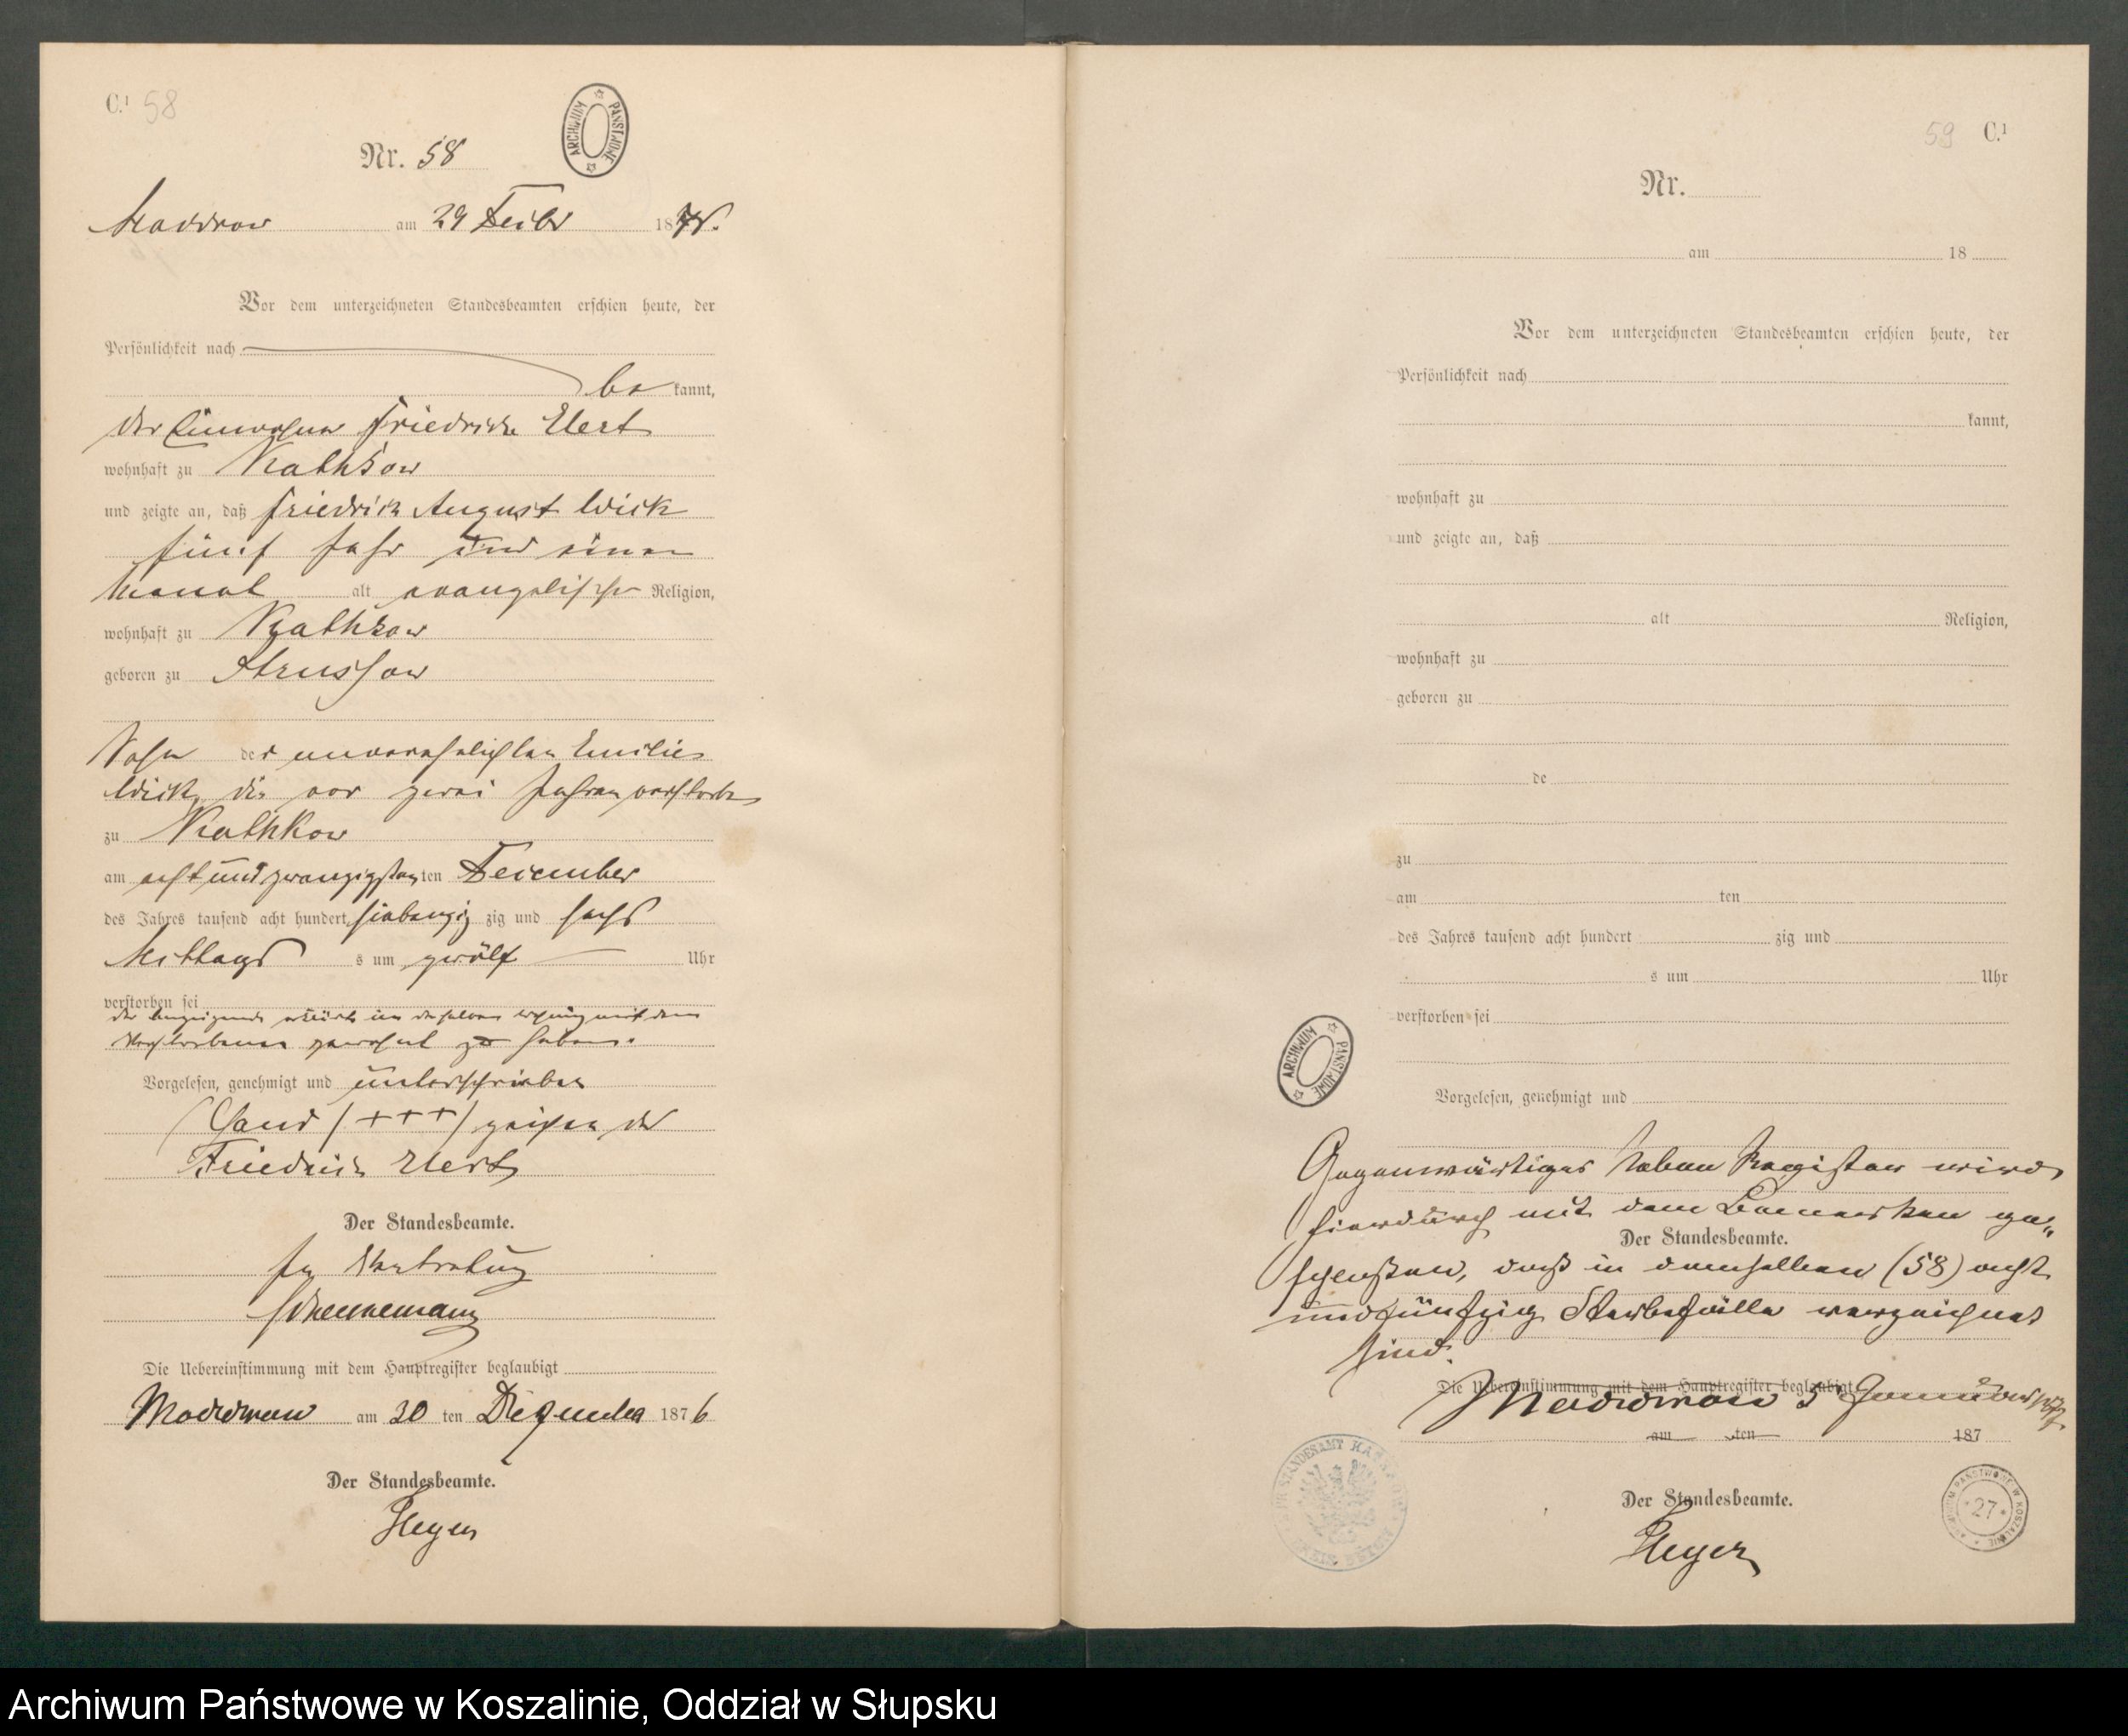 C.¹ 58
Nr. 58
ARCHIWUM PAŃSTWOWE
Moddrow am 29 Decbr 1876.
Vor dem unterzeichneten Standesbeamten erschien heute, der
Persönlichkeit nach
be kannt,
der Einwohner Friedrich Elert
wohnhaft zu Kathkow
und zeigte an, daß Friedrich August Wick
fünf Jahr und einen
Monat alt evangelischer Religion,
wohnhaft zu Kathkow
geboren zu Strussow
Sohn der unverehelichten Emilie
Wick, die vor zwei Jahren verstorben
zu Kathkow
am acht und zwanzigsten ten December
des Jahres tausend acht hundert siebenzig zig und sechs
Mittags s um zwölf Uhr
verstorben sei
der Anzeigende erklärt in derselben Wohnung mit dem
Verstorbenen gewohnt zu haben.
Vorgelesen, genehmigt und unterschrieben
(Hand (+++) zeichen des
Friedrich Elert
Der Standesbeamte.
In Vertretung
Schennemann
Die Uebereinstimmung mit dem Hauptregister beglaubigt
Moddrow am 30 ten Dezember 1876
Der Standesbeamte.
Heyer
59 C.¹
Nr.
am 18
Vor dem unterzeichneten Standesbeamten erschien heute, der
Persönlichkeit nach
kannt,
wohnhaft zu
und zeigte an, daß
alt Religion,
wohnhaft zu
geboren zu
de
zu
am ten
des Jahres tausend acht hundert zig und
s um Uhr
verstorben sei
ARCHIWUM PAŃSTWOWE
Vorgelesen, genehmigt und
Gegenwärtiges Neben Register wird
hierdurch mit dem Bemerken ge„
Der Standesbeamte.
schlossen, daß in demselben (58) acht
und fünfzig Sterbefälle verzeichnet
sind.
Die Uebereinstimmung mit dem Hauptregister beglaubigt
Moddrow 5 Januar 1877
am ten 187
Der Standesbeamte.
Heyer
ARCHIWUM PAŃSTWOWE W KOSZALINIE
27
Archiwum Państwowe w Koszalinie, Oddział w Słupsku